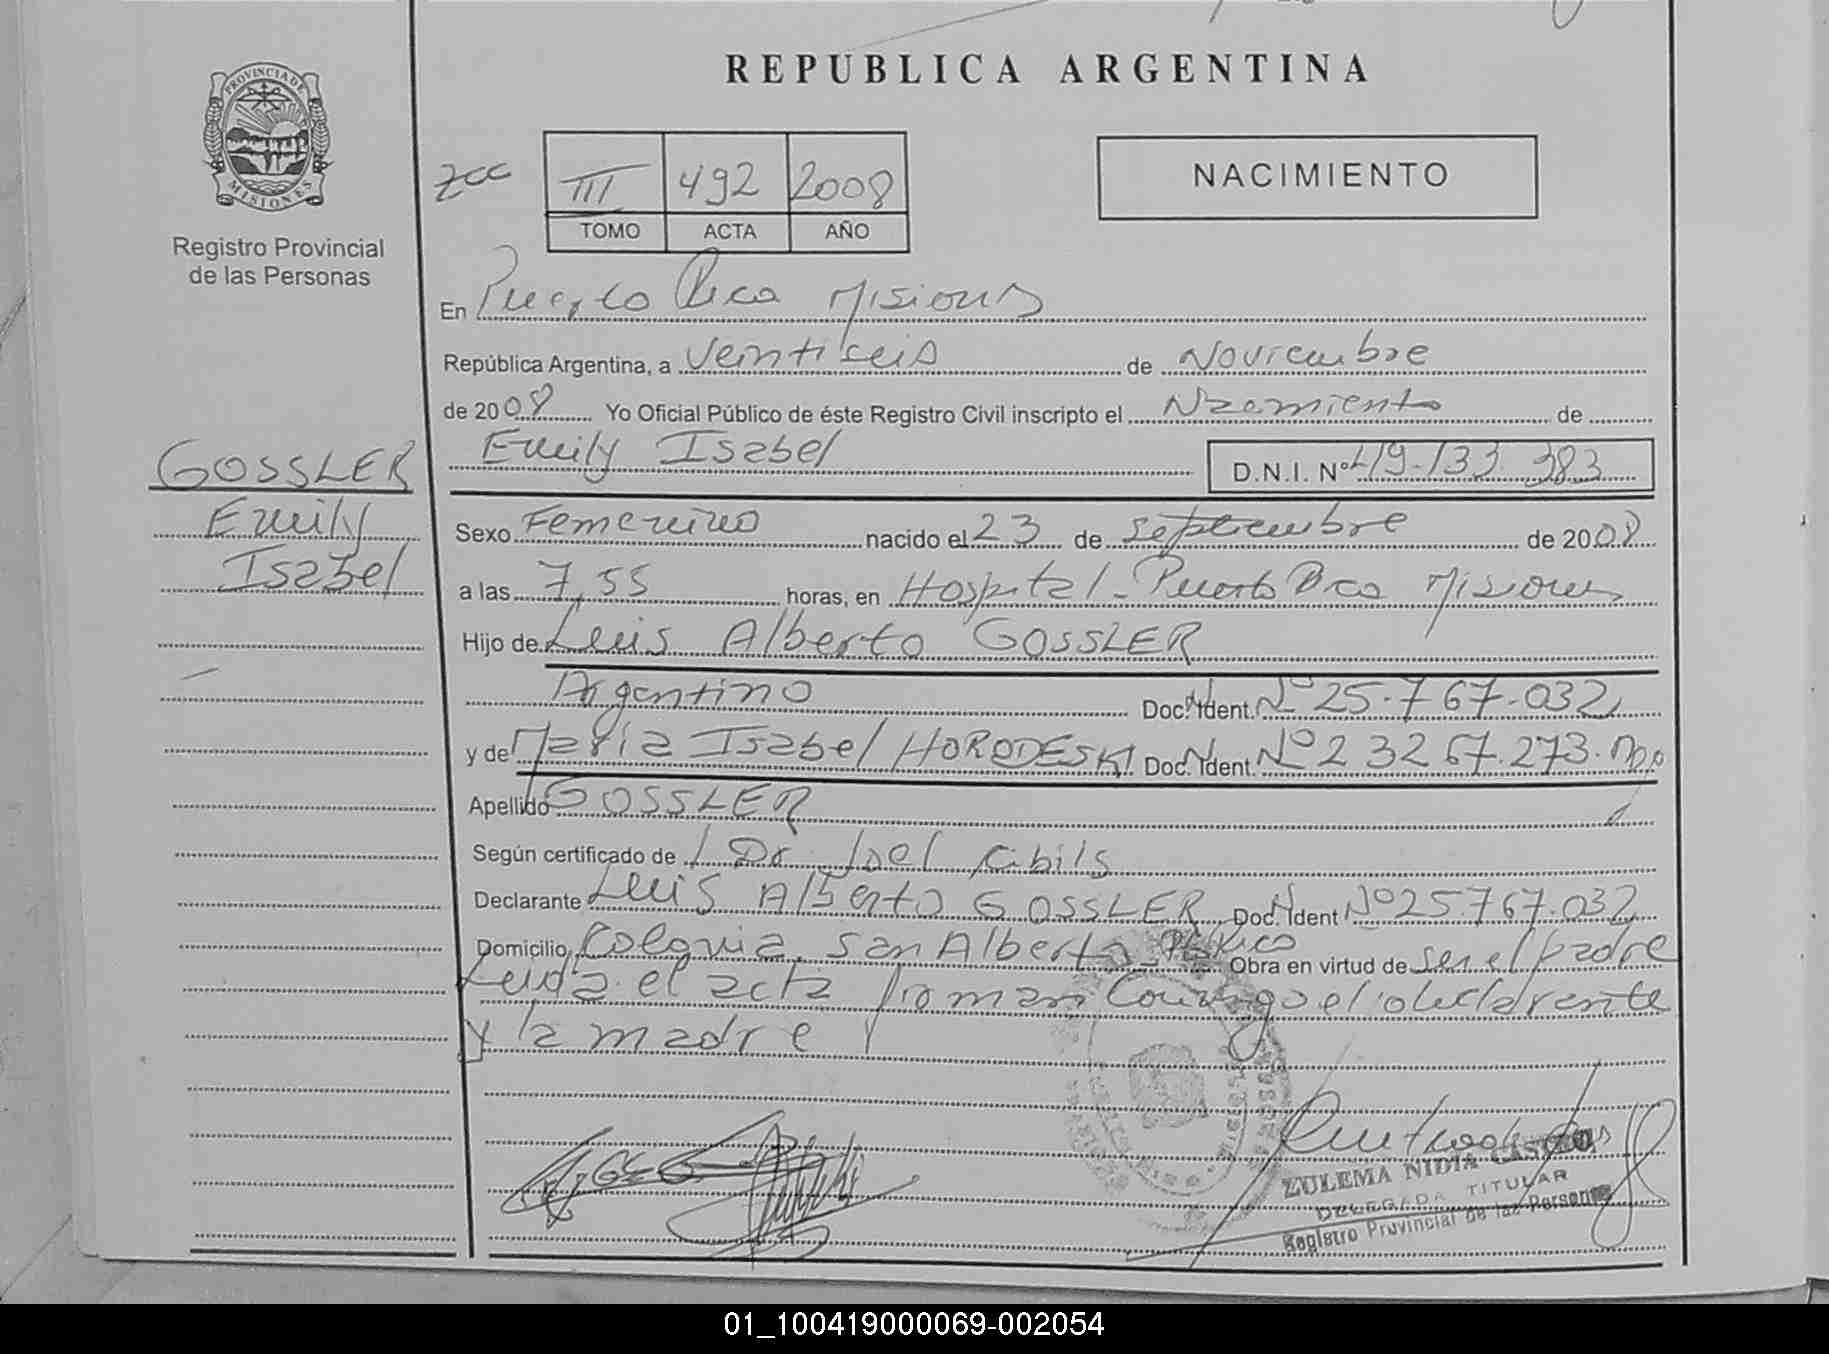 PROVINCIA DE
MISIONES
Registro Provincial
de las Personas
REPUBLICA ARGENTINA
III 492 2008
TOMO ACTA AÑO
NACIMIENTO
En Puerto Rico Misiones
República Argentina, a Veintiseis de Noviembre
de 2008 Yo Oficial Público de éste Registro Civil inscripto el Nacimiento de
GOSSLER
Emily
Isabel
Emily Isabel D.N.I. Nº 49.133.383
Sexo Femenino nacido el 23 de Septiembre de 2008
a las 7,55 horas, en Hospital - Puerto Rico Misiones
Hijo de Luis Alberto GOSSLER
Argentino Doc. Ident. Nº 25.767.032
y de Maria Isabel HORODESKI Doc. Ident. Nº 23267.273.
Apellido GOSSLER
Según certificado de Dr. Joel Cibils
Declarante Luis Alberto GOSSLER Doc. Ident Nº 25.767.032
Domicilio Colonia San Alberto Pto Rico Obra en virtud de ser el padre
Leida el acta firman conmigo el declarante
y la madre
ZULEMA NIDIA
DELEGADA TITULAR
Registro Provincial de las Personas
01_100419000069-002054